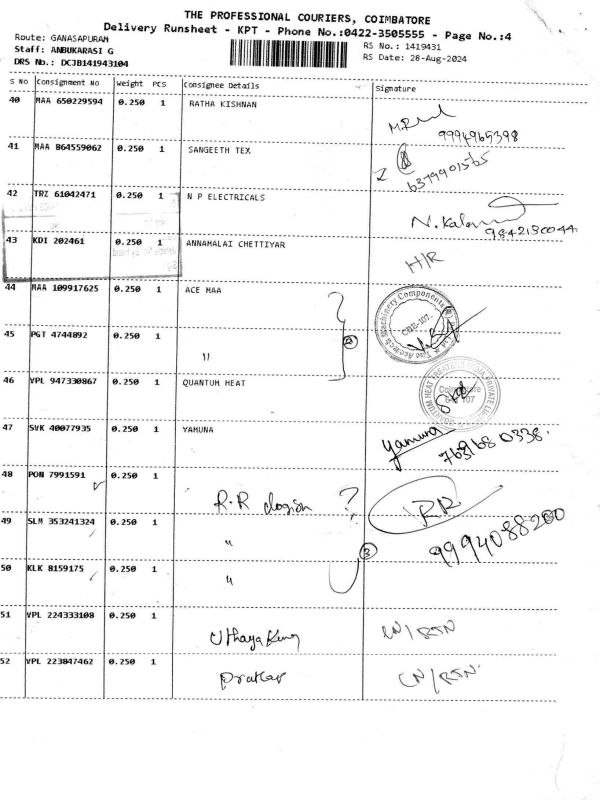 THE PROFESSIONAL COURIERS, COIMBATORE
Delivery Runsheet - KPT - Phone No.:0422-3505555 - Page No.:4
Route: GANASAPURAM
Staff: ANBUKARASI G
DRS No.: DCJB141943104
RS No.: 1419431
RS Date: 28-Aug-2024
S No Consignment NO Weight PCS Consignee Details Signature
40 MAA 650229594 0.250 1 RATHA KISHNAN
9994965398
41 MAA 864559062 0.250 1 SANGEETH TEX
6379901565
42 TRZ 61042471 0.250 1 N P ELECTRICALS
9842130044
43 KDI 202461 0.250 1 ANNAMALAI CHETTIYAR H/R
44 MAA 109917625 0.250 1 ACE MAA
45 PGT 4744892 0.250 1 "
46 VPL 947330867 0.250 1 QUANTUM HEAT
47 SVK 40077935 0.250 1 YAMUNA Yamuna
48 PON 7991591 0.250 1 R.R RR
49 SLM 353241324 0.250 1 "
9994088200
50 KLK 8159175 0.250 1 "
3
51 VPL 224333108 0.250 1
52 VPL 223847462 0.250 1